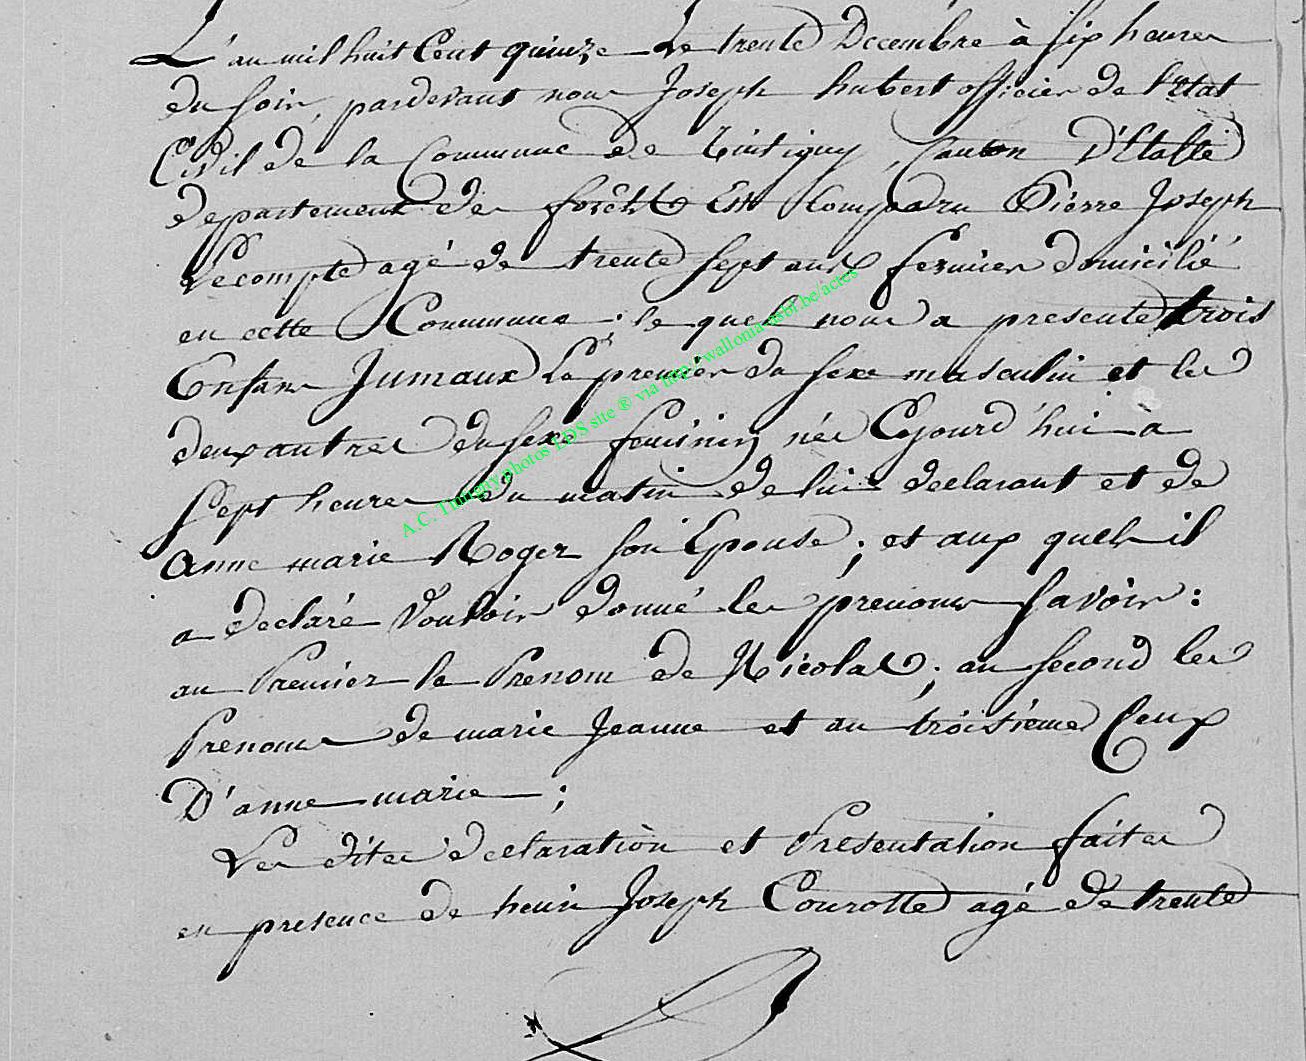 L'an mil huit Cent quinze Le trente Decembre à six heures
du soir, pardevant nous Joseph hubert officier de l'Etat
Civil de la Commune de Tintigny, Canton D'Etalle
departement des forêts Est Comparu Pierre Joseph
Lecompte agé de trente sept ans fermier domicilié
en cette Commune; le quel nous a presenté trois
Enfans Jumaux Le premier du sexe masculin et les
deux autres du sexe feminin nés Cejourd'hui a
sept heures du matin de lui declarant et de
anne marie Roger son Epouse; et aux quels il
a declaré Vouloir donné les prenoms savoir:
au Premier le Prenom de Nicolas; au second les
Prenoms de marie Jeanne et au troisieme Ceux
D'anne marie;
Les dites declaration et Presentation faites
en presence de henri Joseph Courotte agé de trente
A.C. Tintigny photos EDS site ® via http://wallonia-asbl.be/actes